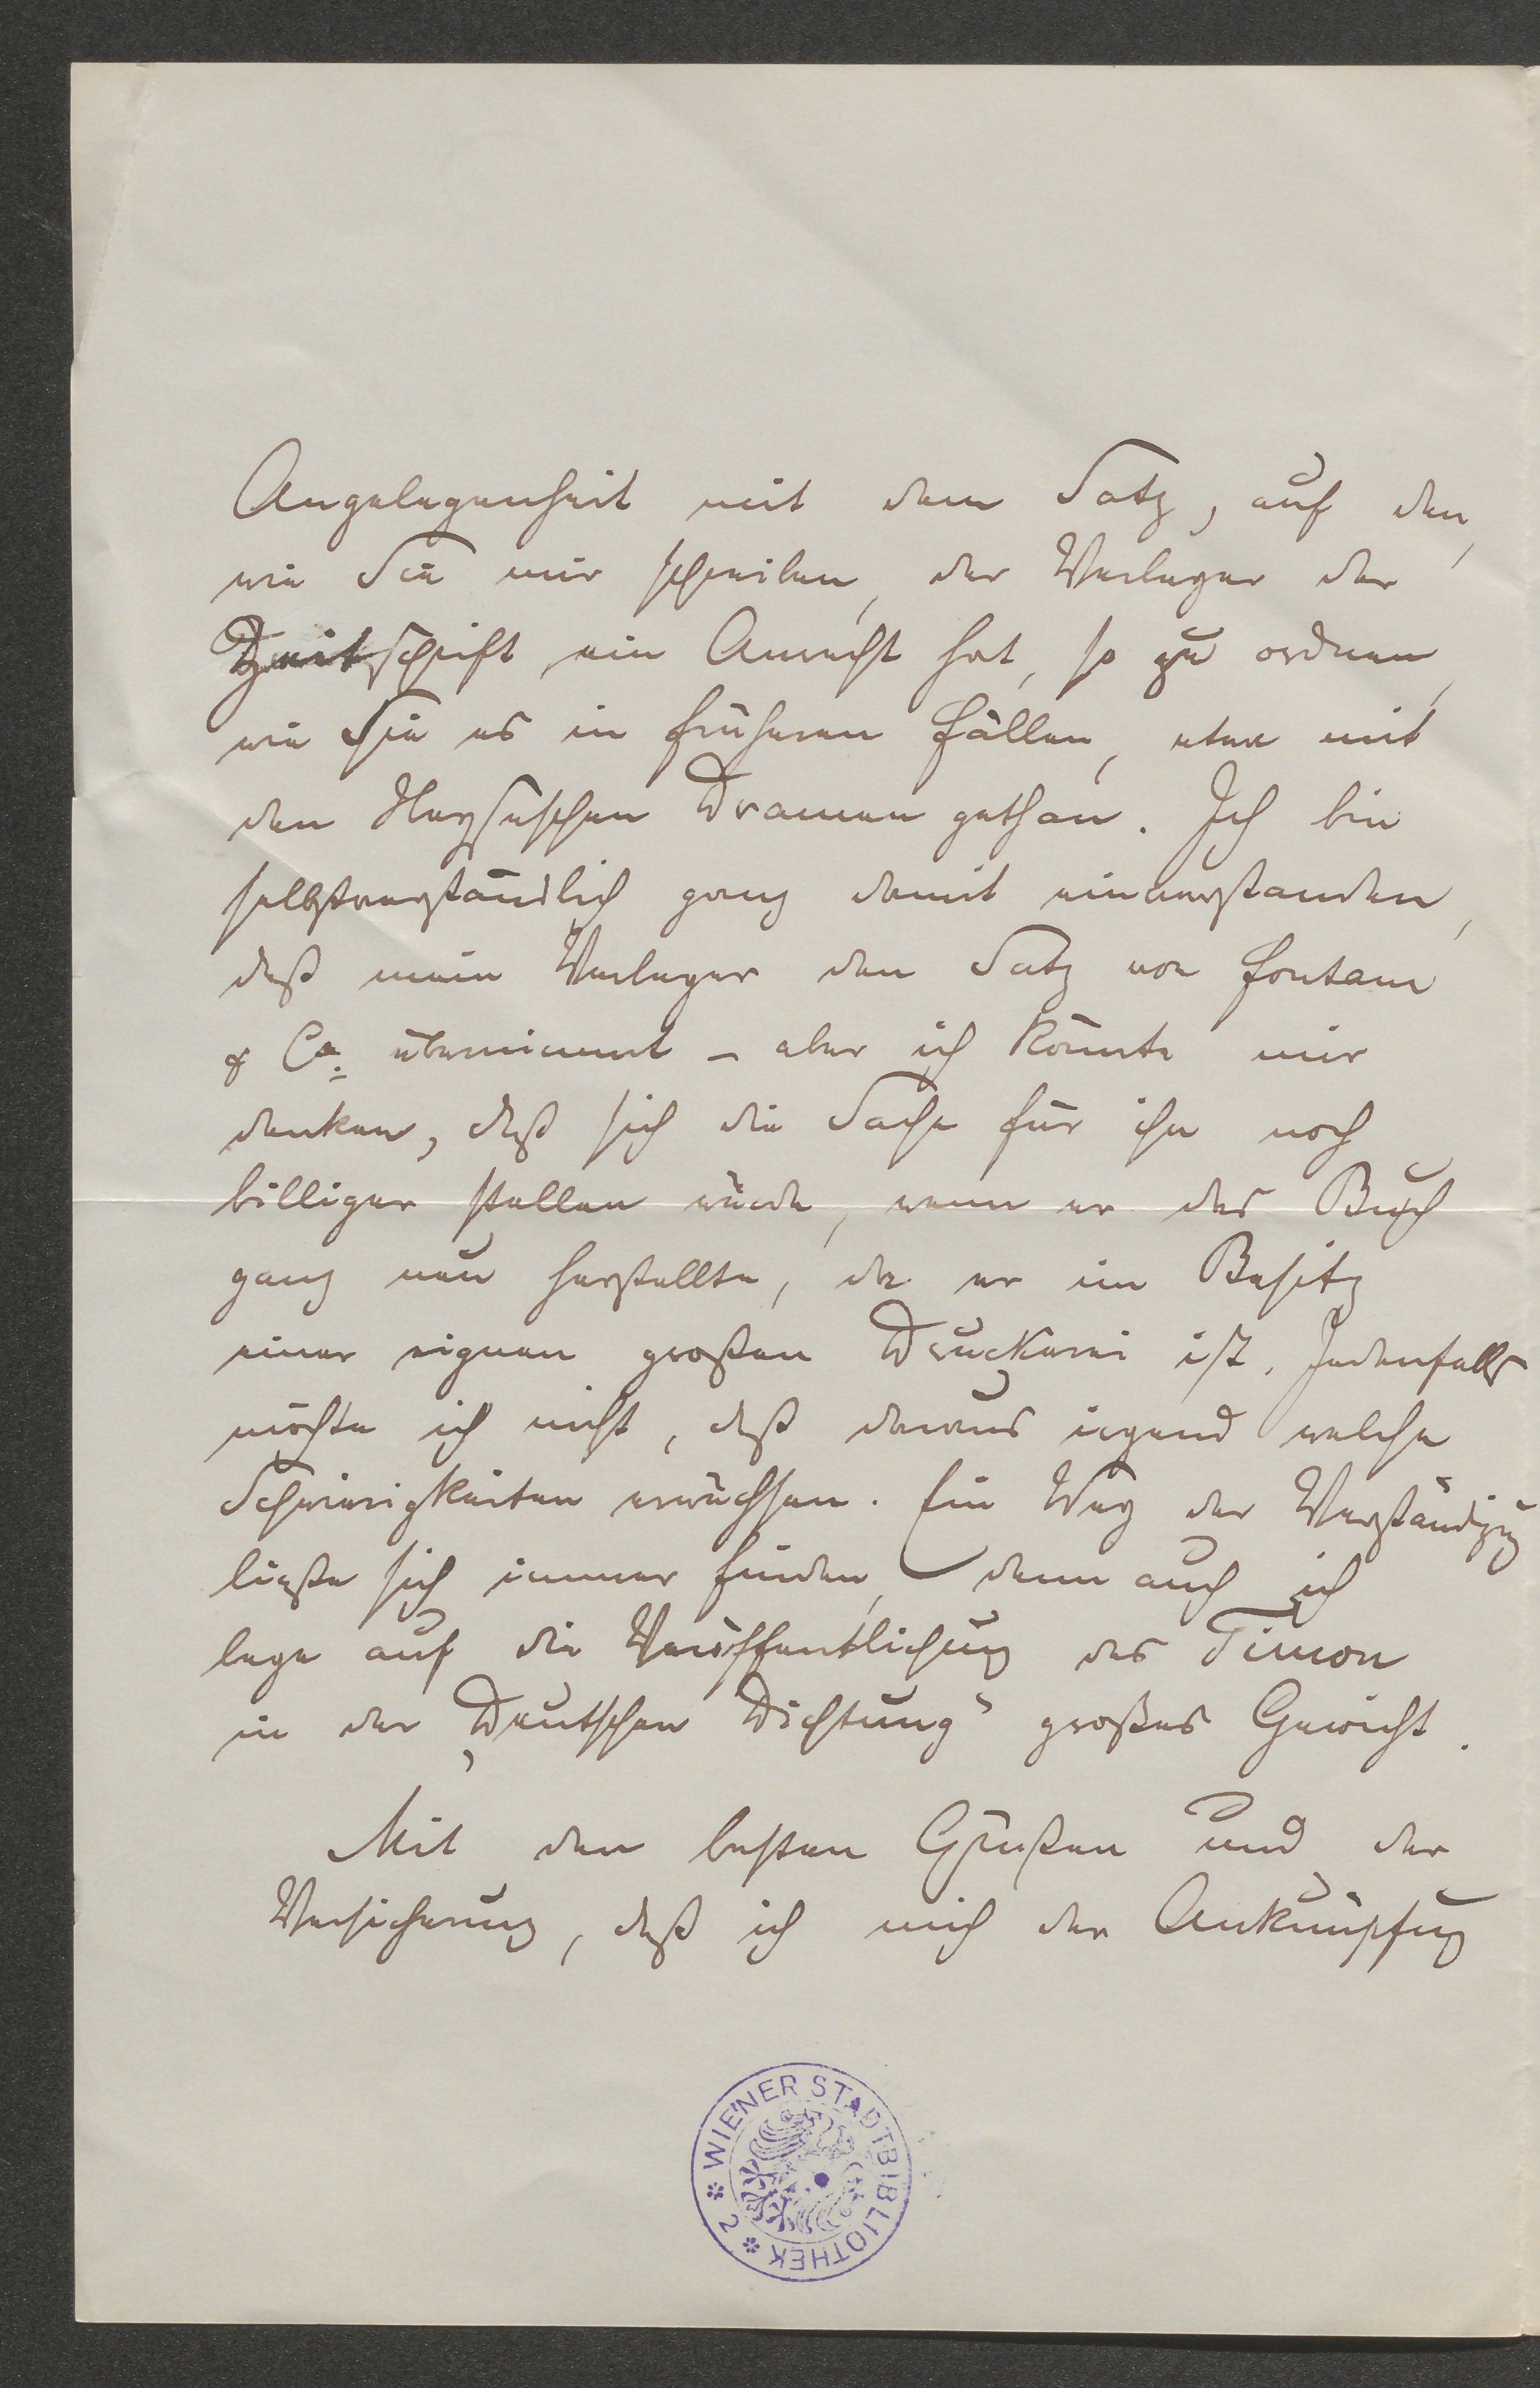 Angelegenheit mit dem Satz, auf den,
wie Sie mir schreiben, der Verleger der
Zeitschrift ein Anrecht hat, so zu ordnen,
wie Sie es in früheren Fällen, etwa mit
den Heyseschen Dramen gethan. Ich bin
selbstverständlich ganz damit einverstanden,
daß mein Verleger den Satz von Fontane
& Co. übernimmt – aber ich könnte mir
denken, daß sich die Sache für ihn noch
billiger stellen würde, wenn er das Buch
ganz neu herstellte, da er im Besitz
einer eignen großen Druckerei ist. Jedenfalls
möchte ich nicht, daß daraus irgend welche
Schwierigkeiten erwüchsen. Ein Weg der Verständigung
ließe sich immer finden, denn auch ich
lege auf die Veröffentlichung des Timon
in der „Deutschen Dichtung" großes Gewicht.
Mit den besten Grüßen und der
Versicherung, daß ich mich der Anknüpfung
WIENER STADTBIBLIOTHEK * 2 *